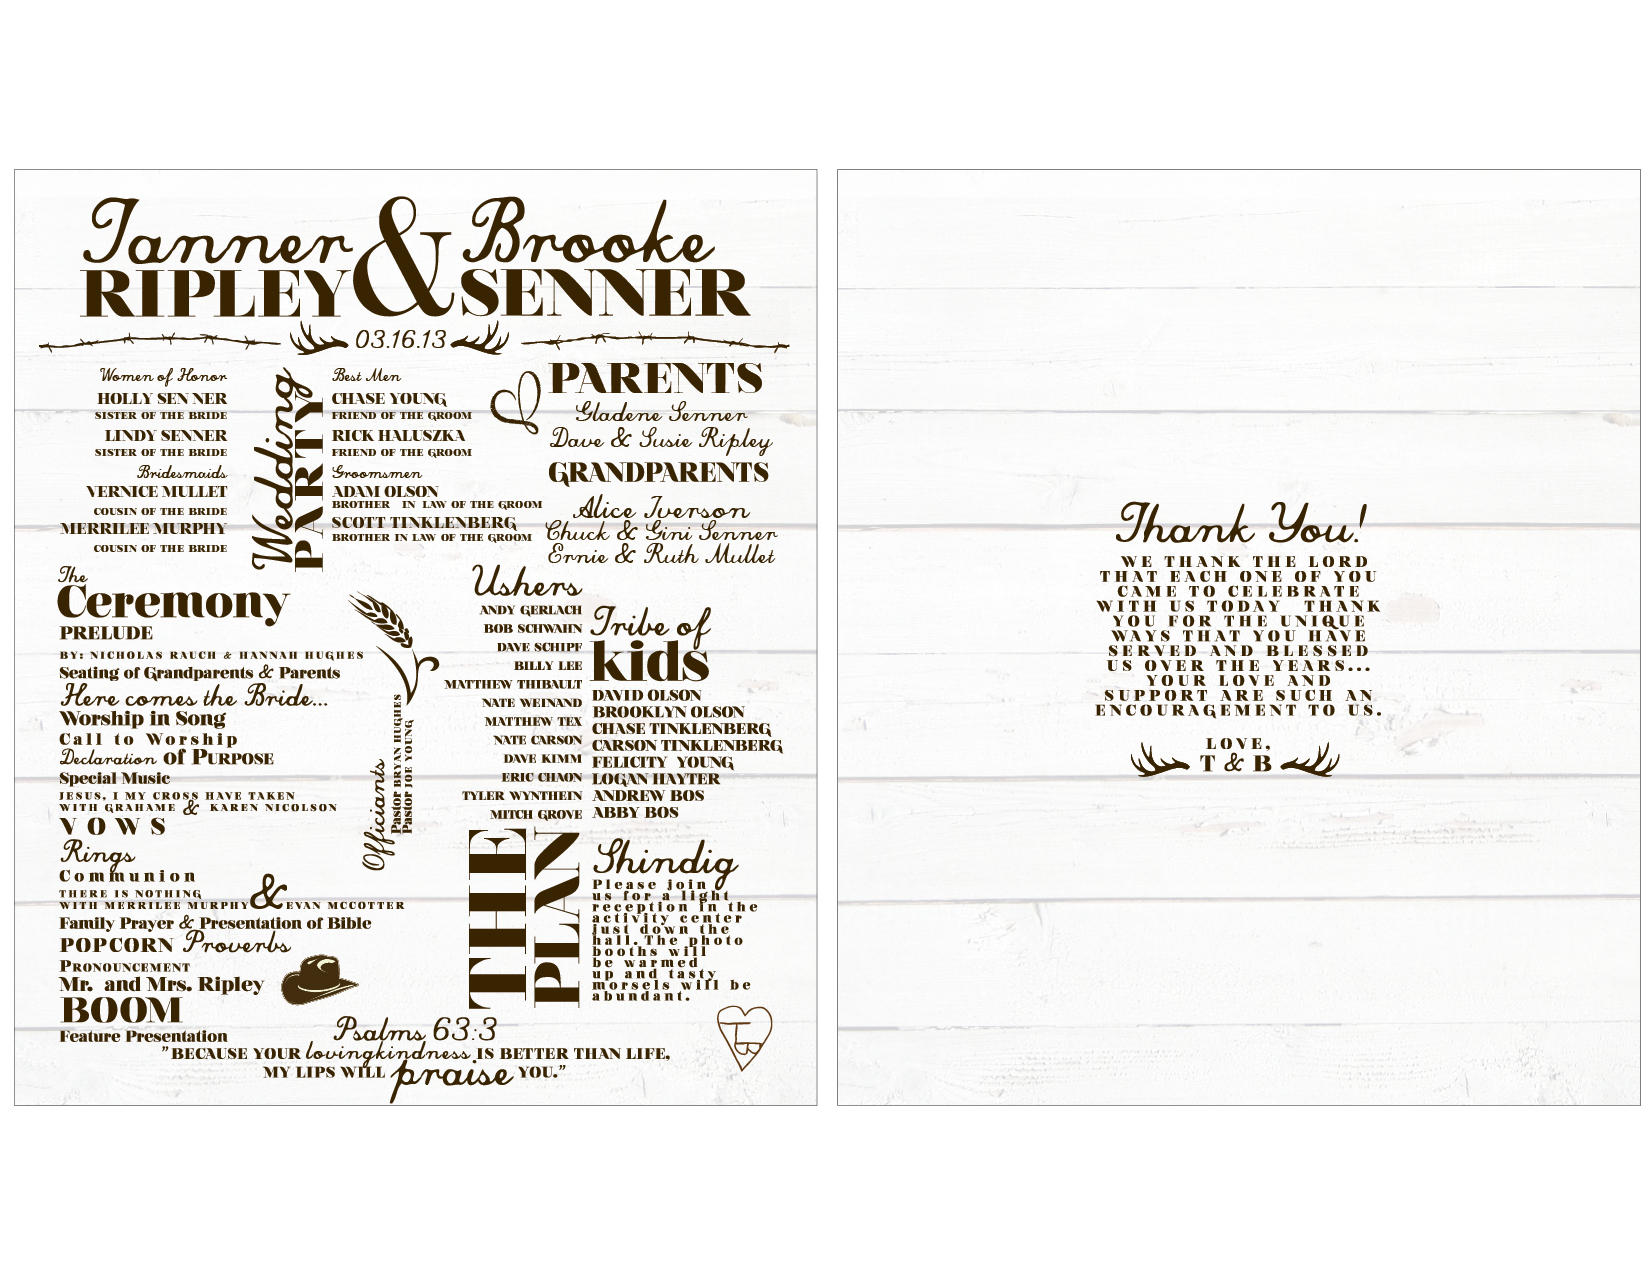 Tanner & Brooke
RIPLEY SENNER
03.16.13
Women of Honor
HOLLY SEN NER
SISTER OF THE BRIDE
LINDY SENNER
SISTER OF THE BRIDE
Bridesmaids
VERNICE MULLET
COUSIN OF THE BRIDE
MERRILEE MURPHY
COUSIN OF THE BRIDE
Wedding
PARTY
Best Men
CHASE YOUNG
FRIEND OF THE GROOM
RICK HALUSZKA
FRIEND OF THE GROOM
Groomsmen
ADAM OLSON
BROTHER IN LAW OF THE GROOM
SCOTT TINKLENBERG
BROTHER IN LAW OF THE GROOM
PARENTS
Gladene Senner
Dave & Susie Ripley
GRANDPARENTS
Alice Iverson
Chuck & Gini Senner
Ernie & Ruth Mullet
The
Ceremony
PRELUDE
BY: NICHOLAS RAUCH & HANNAH HUGHES
Seating of Grandparents & Parents
Here comes the Bride...
Worship in Song
Call to Worship
Declaration of PURPOSE
Special Music
JESUS, I MY CROSS HAVE TAKEN
WITH GRAHAME & KAREN NICOLSON
VOWS
Rings
Communion
THERE IS NOTHING
WITH MERRILEE MURPHY & EVAN MCCOTTER
Family Prayer & Presentation of Bible
POPCORN Proverbs
PRONOUNCEMENT
Mr. and Mrs. Ripley
BOOM
Feature Presentation
Officiants
Pastor BRYAN HUGHES
Pastor JOE YOUNG
Ushers
ANDY GERLACH
BOB SCHWAHN
DAVE SCHIPF
BILLY LEE
MATTHEW THIBAULT
NATE WEINAND
MATTHEW TEX
NATE CARSON
DAVE KIMM
ERIC CHAON
TYLER WYNTHEIN
MITCH GROVE
Tribe of
kids
DAVID OLSON
BROOKLYN OLSON
CHASE TINKLENBERG
CARSON TINKLENBERG
FELICITY YOUNG
LOGAN HAYTER
ANDREW BOS
ABBY BOS
THE
PLAN
Shindig
Please join
us for a light
reception in the
activity center
just down the
hall. The photo
booths will
be warmed
up and tasty
morsels will be
abundant.
Psalms 63:3
"BECAUSE YOUR lovingkindness IS BETTER THAN LIFE,
MY LIPS WILL praise YOU."
T B
Thank You!
WE THANK THE LORD
THAT EACH ONE OF YOU
CAME TO CELEBRATE
WITH US TODAY THANK
YOU FOR THE UNIQUE
WAYS THAT YOU HAVE
SERVED AND BLESSED
US OVER THE YEARS...
YOUR LOVE AND
SUPPORT ARE SUCH AN
ENCOURAGEMENT TO US.
LOVE,
T & B